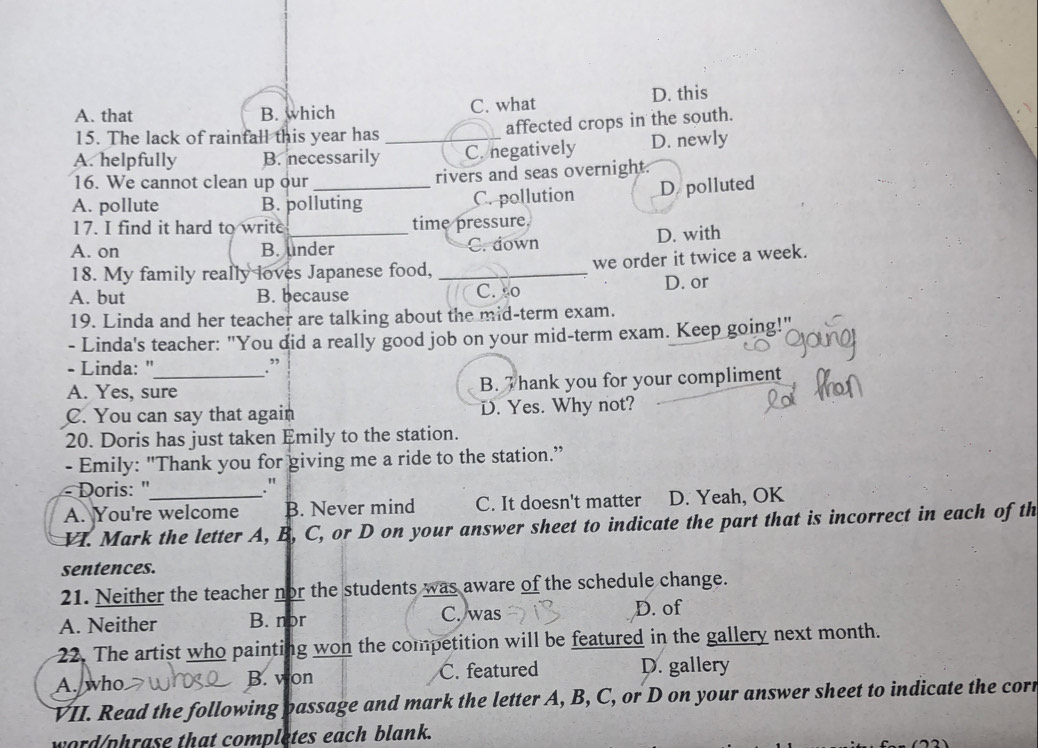 A. that B. which C. what D. this
15. The lack of rainfall this year has __________ affected crops in the south.
A. helpfully B. necessarily C. negatively D. newly
16. We cannot clean up our __________ rivers and seas overnight.
A. pollute B. polluting C. pollution D. polluted
17. I find it hard to write __________ time pressure.
A. on B. under C. down D. with
18. My family really loves Japanese food, __________ we order it twice a week.
A. but B. because C. so D. or
19. Linda and her teacher are talking about the mid-term exam.
- Linda's teacher: "You did a really good job on your mid-term exam. Keep going!"
- Linda: "__________.”
A. Yes, sure B. Thank you for your compliment
C. You can say that again D. Yes. Why not?
20. Doris has just taken Emily to the station.
- Emily: "Thank you for giving me a ride to the station.”
- Doris: "__________."
A. You're welcome B. Never mind C. It doesn't matter D. Yeah, OK
VI. Mark the letter A, B, C, or D on your answer sheet to indicate the part that is incorrect in each of th
sentences.
21. Neither the teacher nor the students was aware of the schedule change.
A. Neither B. nor C. was D. of
22. The artist who painting won the competition will be featured in the gallery next month.
A. who → whose B. won C. featured D. gallery
VII. Read the following passage and mark the letter A, B, C, or D on your answer sheet to indicate the corr
word/phrase that completes each blank.